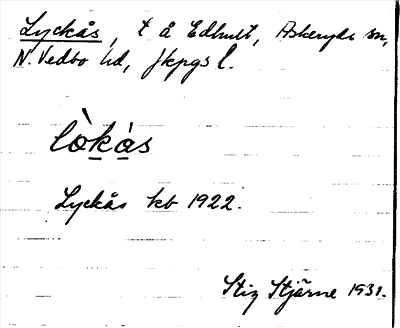 Lyckås, t å Edhult, Askeryds sn,
N. Vedbo hd, Jkpgs l.
lòkås
Lyckås kb 1922.
Stig Stjärne 1931.